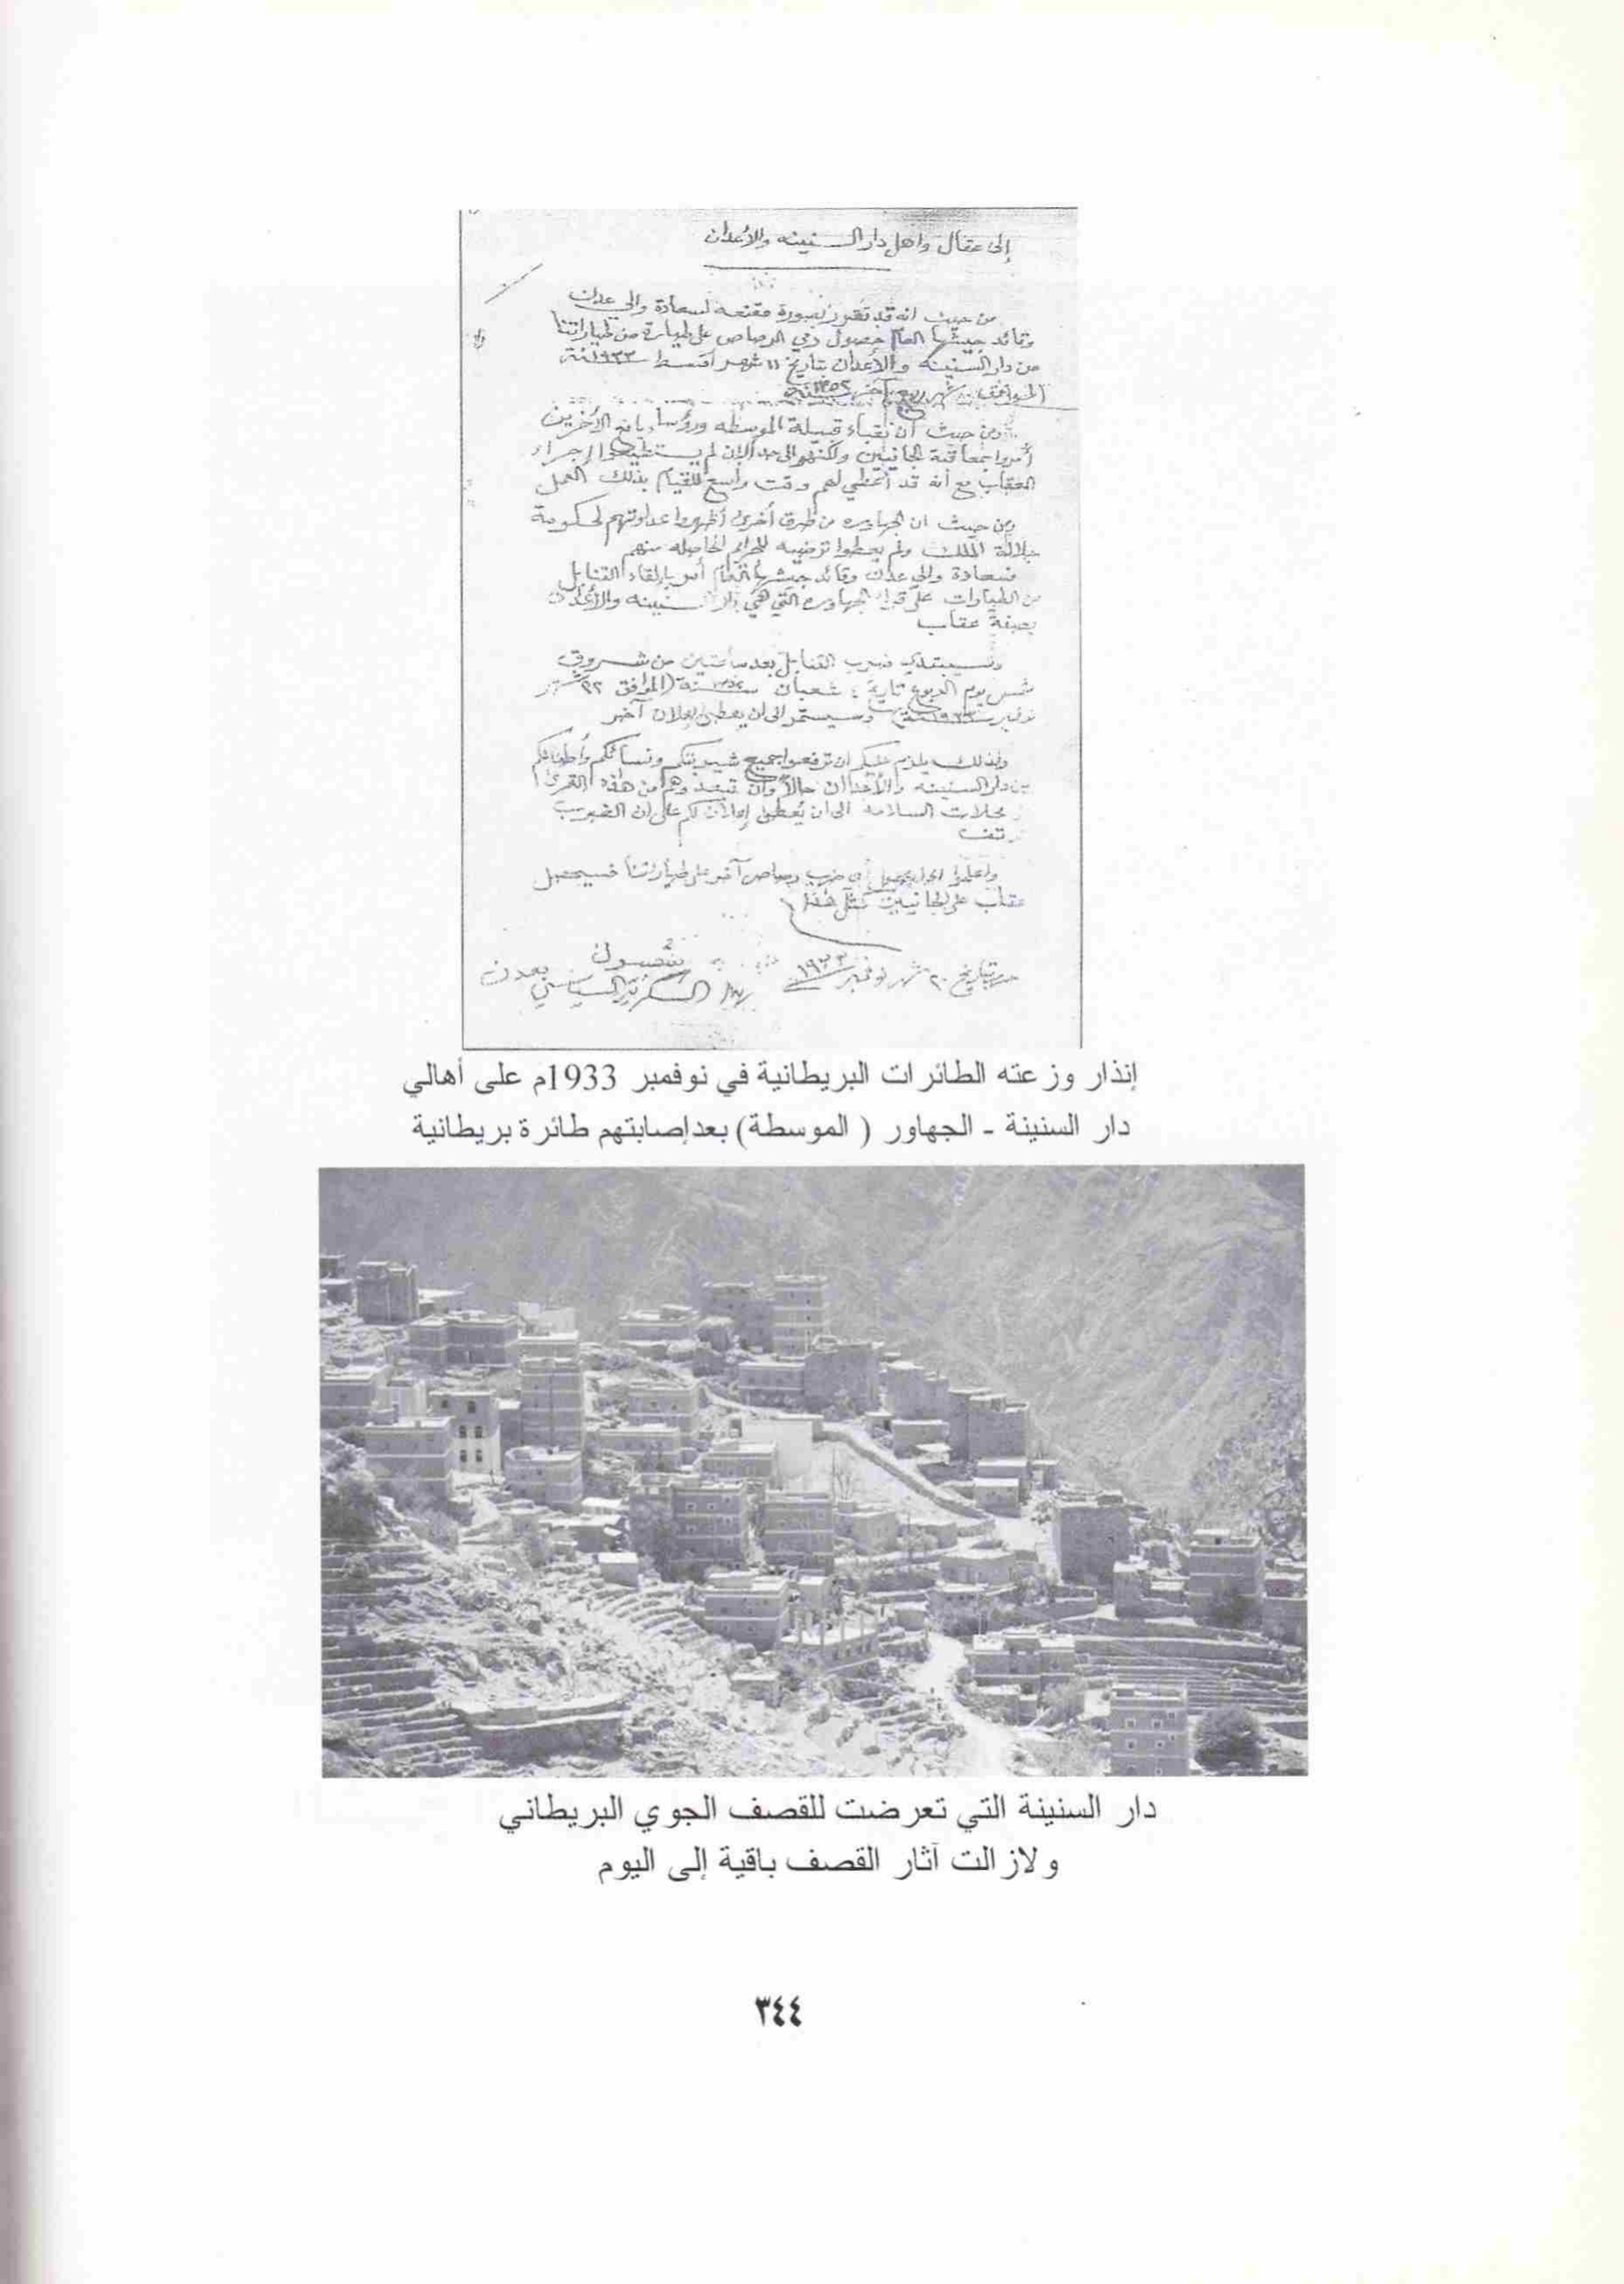 إلى عقال واهل دار السنينه والأعدان
من حيث انه قد تقرر بصورة مقنعه لسعادة والي عدن
وقائد جيشها العام حصول رمي الرصاص على طيارة من طياراتنا
من دار السنينه والأعدان بتاريخ ١١ شهر اغسط ١٩٣٣ سنة
الموافق شهر ربيع آخر ١٣٥٢ سنة
ومن حيث أن نقباء قبيلة الموسطه ورؤساء يافع الأخرين
أمروا بمعاقبة الجانيين ولكنهم الى حد الان لم يستطيعوا إجراء
العقاب مع أنه قد أعطي لهم وقت واسع للقيام بذلك العمل
ومن حيث ان الجهاوره من طرق أخرى أظهروا عداوتهم لحكومة
جلالة الملك ولم يعطوا ترضيه للجرائم الحاصله منهم
فسعادة والي عدن وقائد جيشها العام أمر بإلقاء القنابل
من الطيارات على قرى الجهاوره التي هي دار السنينه والأعدان
بصفة عقاب
وسيبتدي ضرب القنابل بعد ساعتين من شروق
شمس يوم الربوع تاريخ ٤ شعبان ١٣٥٢ سنة (الموافق ٢٢ شهر
نوفمبر ١٩٣٣ سنة) وسيستمر الى ان يعطى إعلان آخر
ولذلك يلزم عليكم ان ترفعوا جميع شيبتكم ونسائكم وأطفالكم
من دار السنينه والأعدان حالاً وأن تبعدوهم من هذه القرى
محلات السلامه الى ان يعطى إعلان لكم على ان الضرب
واعلموا أي ضرب رصاص آخر على طياراتنا فسيحصل
عقاب على الجانيين كمثل هذا
حرر بتاريخ ٢٠ شهر نوفمبر ١٩٣٣
السكرتير السياسي بعدن
إنذار وزعته الطائرات البريطانية في نوفمبر 1933م على أهالي
دار السنينة - الجهاور ( الموسطة) بعدإصابتهم طائرة بريطانية
دار السنينة التي تعرضت للقصف الجوي البريطاني
ولازالت آثار القصف باقية إلى اليوم
٣٤٤